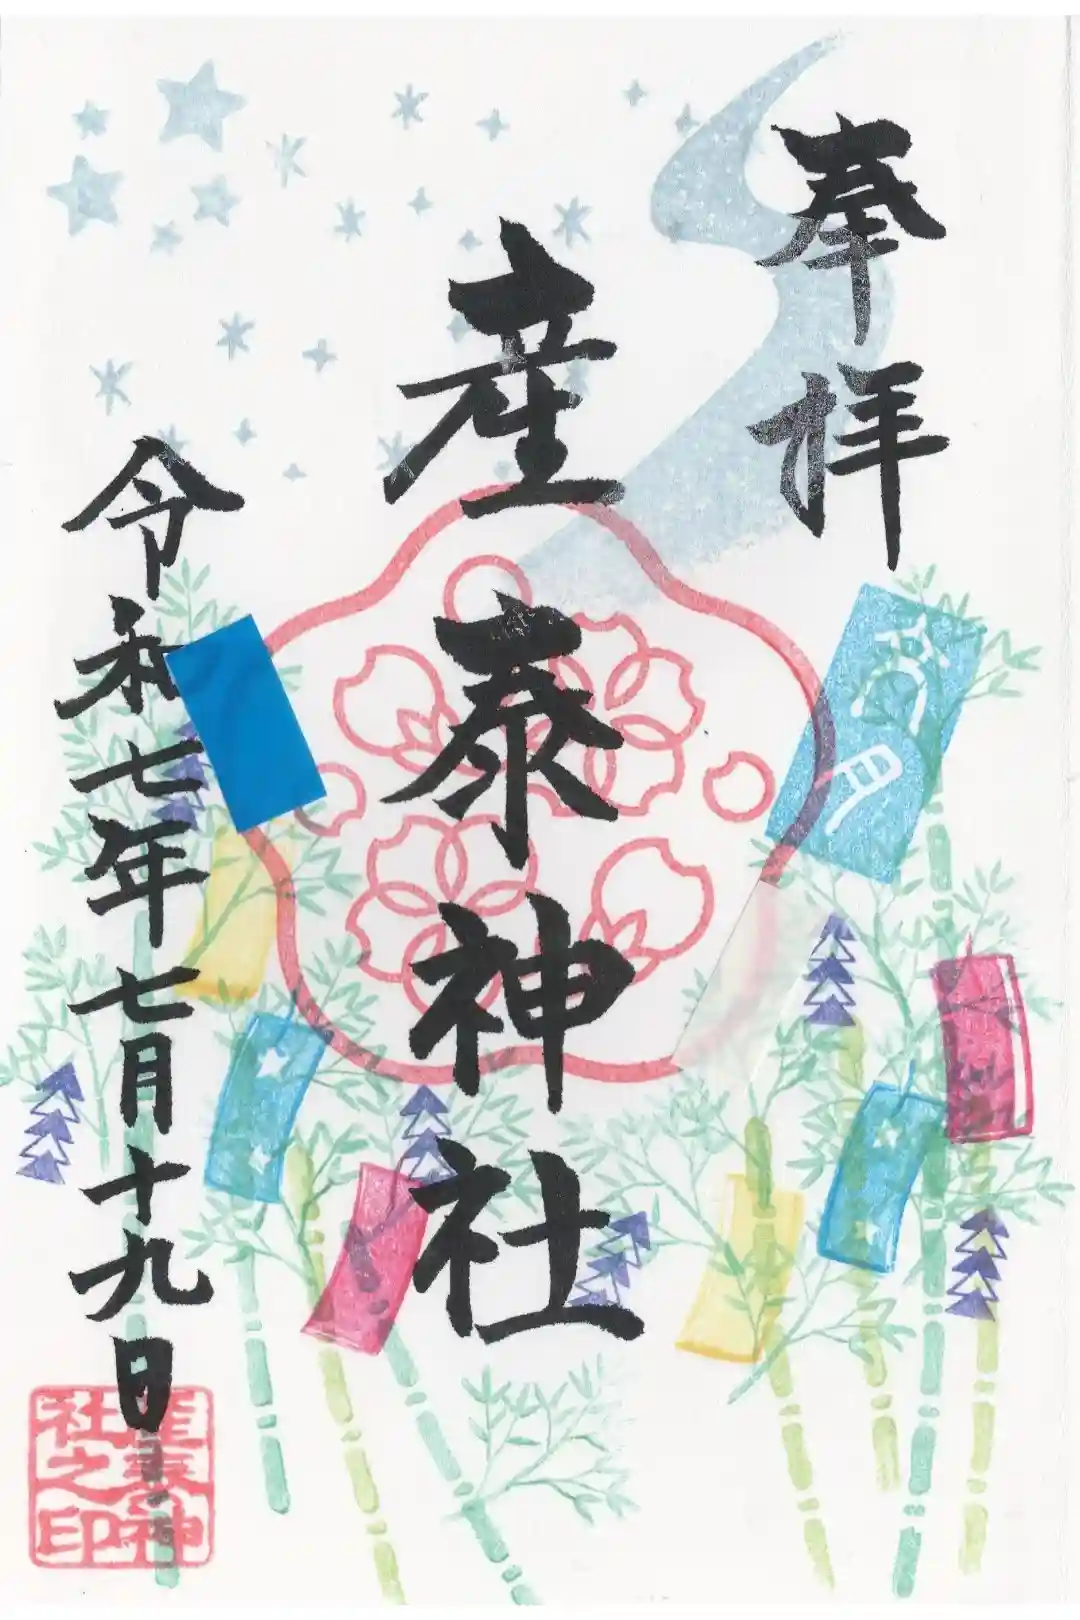 奉拝
六月
産泰神社
令和七年七月十九日
産泰神
社之印